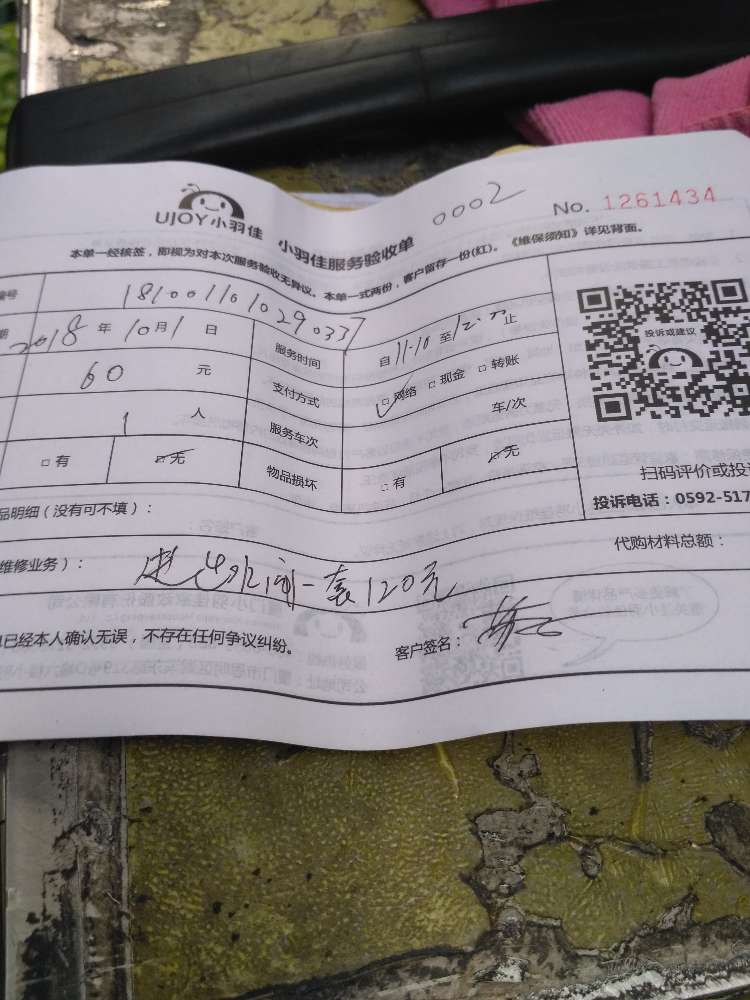 UJOY小羽佳 小羽佳服务验收单 0002 No. 1261434
本单一经核签，即视为对本次服务验收无异议。本单一式两份，客户留存一份(红)。《维保须知》详见背面。
编号 1810011010290337
期 2018 年 10月 1 日 服务时间 自 11.10 至 12. 止
60 元 支付方式 □网络 □现金 □转账
1 人 服务车次 车/次
□有 □无 物品损坏 □有 □无
投诉或建议
扫码评价或投
投诉电话：0592-517
品明细（没有可不填）：
代购材料总额：
维修业务）： 进出水阀一套120元
已经本人确认无误，不存在任何争议纠纷。 客户签名：